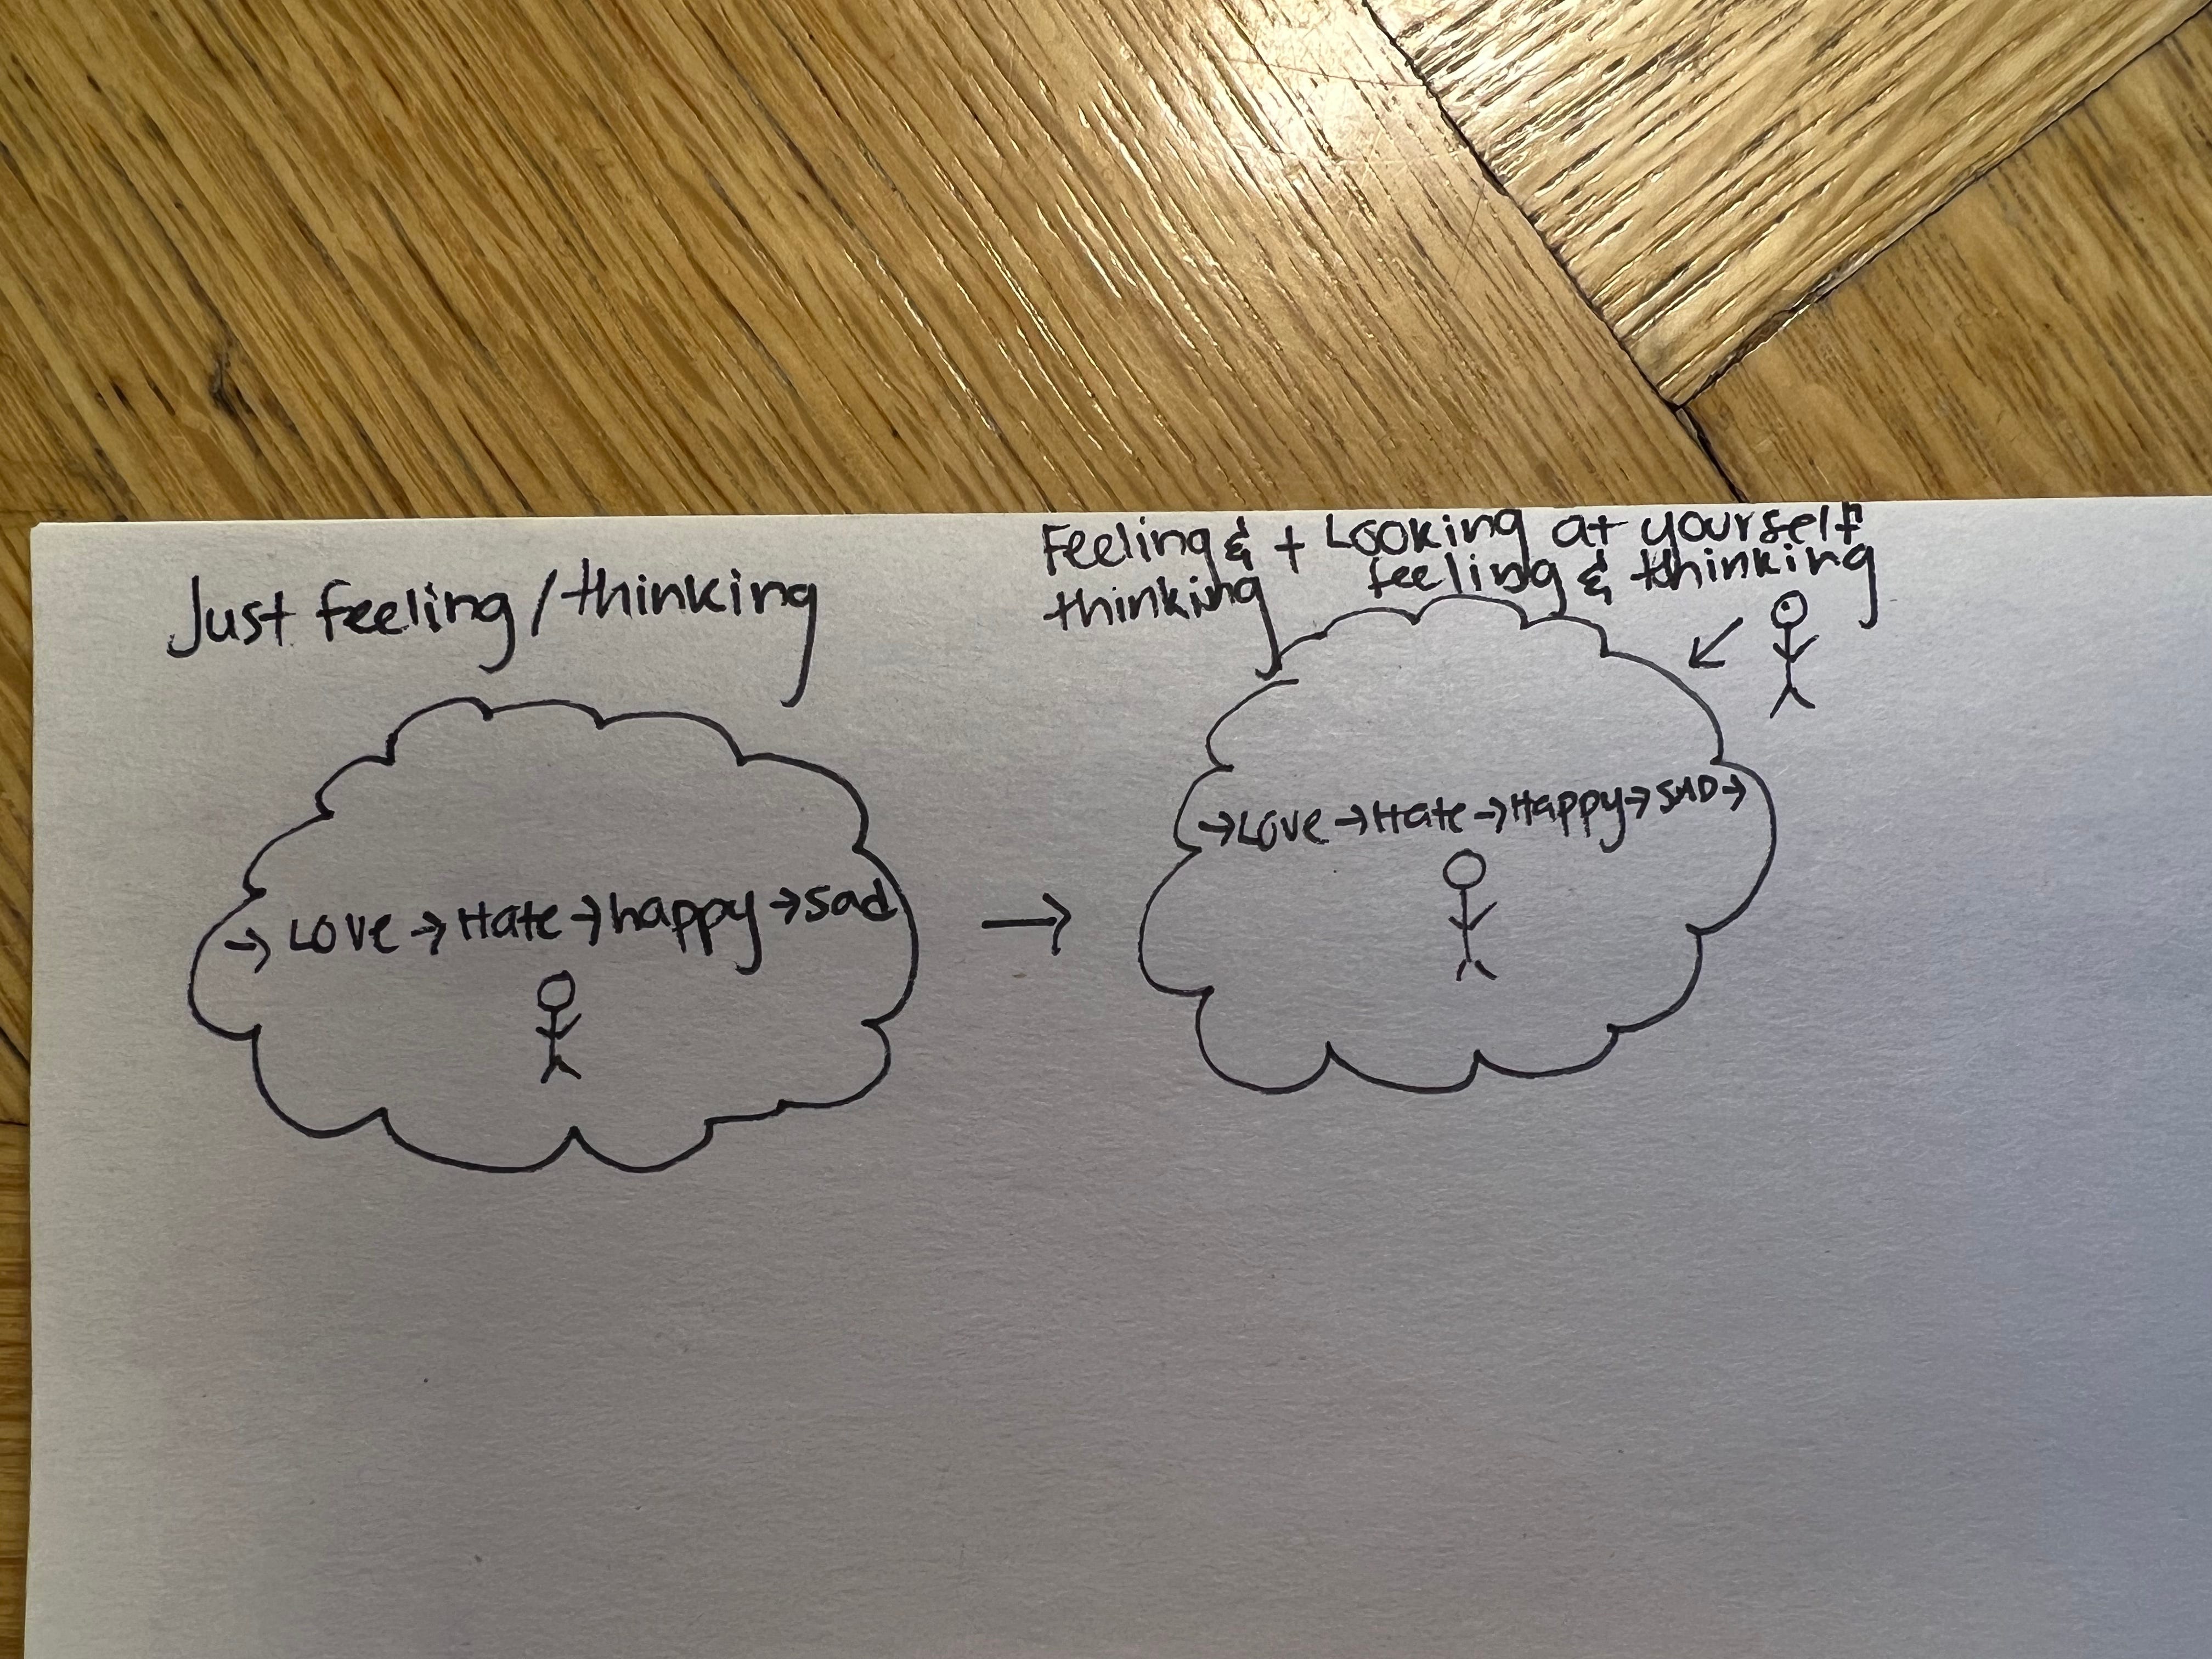 Just feeling/thinking
→ Love → Hate → happy → sad
→
Feeling & + Looking at yourself
thinking feeling & thinking
→ Love → Hate → Happy → SAD →